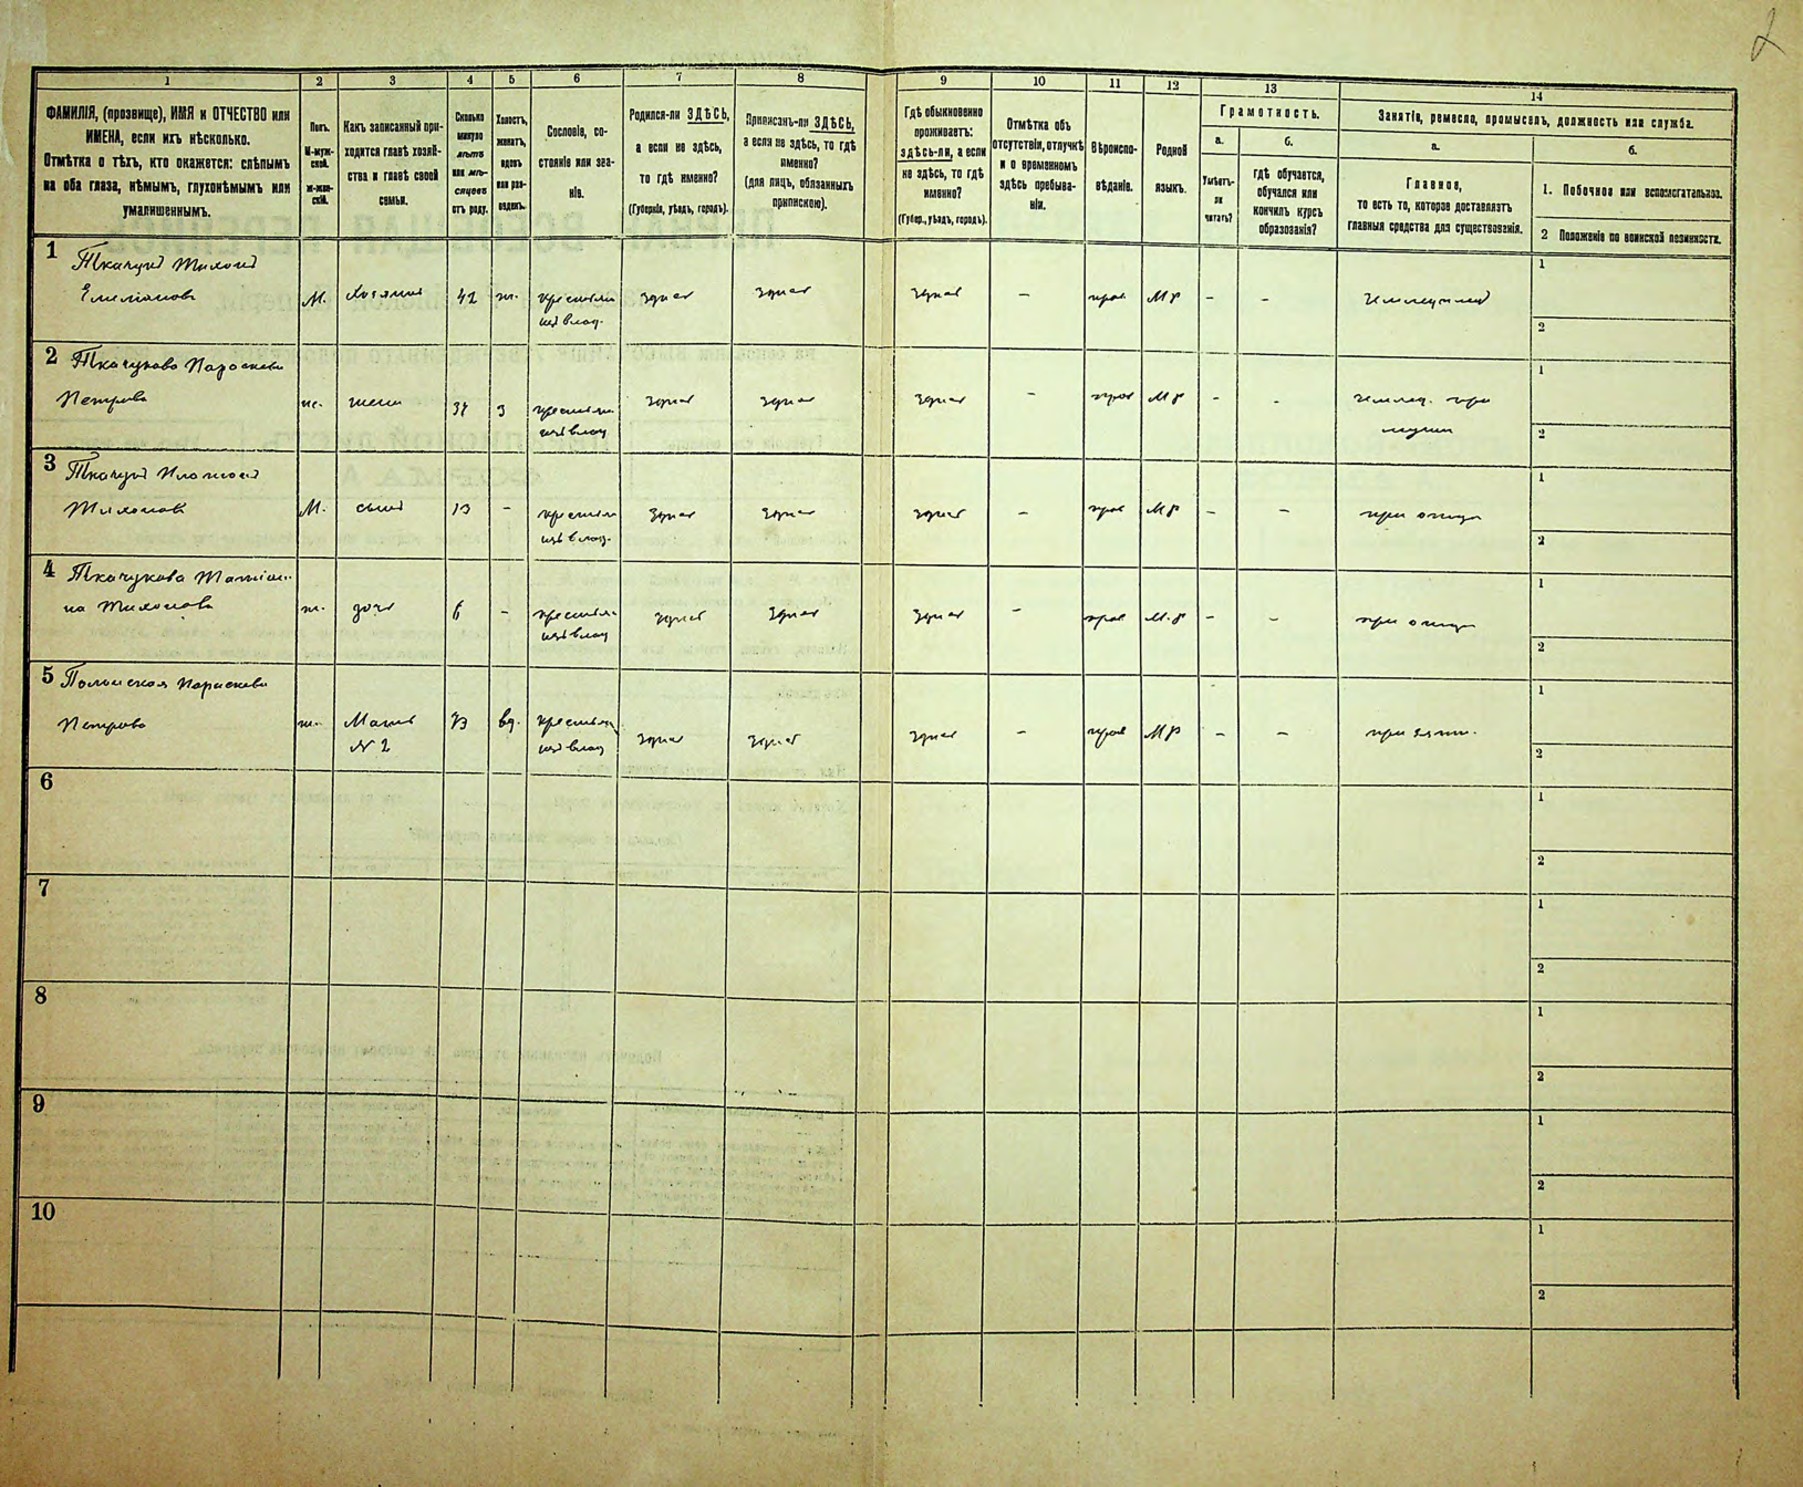 2
1
2
3
4
5
6
7
8
9
10
11
12
13
14
ФАМИЛІЯ, (прозвище), ИМЯ и ОТЧЕСТВО или
ИМЕНА, если ихъ нѣсколько.
Отмѣтка о тѣхъ, кто окажется: слѣпымъ
на оба глаза, нѣмымъ, глухонѣмымъ или
умалишеннымъ.
Полъ.
М-муж-
ской.
ж-жен-
скій.
Какъ записанный при-
ходится главѣ хозяй-
ства и главѣ своей
семьи.
Сколько
минуло
лѣтъ
или мѣ-
сяцевъ
отъ роду.
Холостъ,
женатъ,
вдовъ
или раз-
веденъ.
Сословіе, со-
стояніе или зва-
ніе.
Родился-ли ЗДѢСЬ,
а если не здѣсь,
то гдѣ именно?
(Губернія, уѣздъ, городъ).
Приписанъ-ли ЗДѢСЬ,
а если не здѣсь, то гдѣ
именно?
(для лицъ, обязанныхъ
припискою).
Гдѣ обыкновенно
проживаетъ:
здѣсь-ли, а если
не здѣсь, то гдѣ
именно?
(Губер., уѣздъ, городъ).
Отмѣтка объ
отсутствіи, отлучкѣ
и о временномъ
здѣсь пребыва-
ніи.
Вѣроиспо-
вѣданіе.
Родной
языкъ.
Грамотность.
а.
Умѣетъ-
ли
читать?
б.
гдѣ обучается,
обучался или
кончилъ курсъ
образованія?
Занятіе, ремесло, промыселъ, должность или служба.
а.
Главное,
то есть то, которое доставляетъ
главныя средства для существованія.
б.
1. Побочное или вспомогательное.
2 Положеніе по воинской повинности.
1 Ткачукъ Тихонъ
Емеліановъ
М. Хозяинъ 42 ж. крестьян
изъ влад. здѣсь здѣсь здѣсь - прав. Мр - - земледѣлец
1
2
2 Ткачукова Параскева
Петрова
ж. жена з крестьян
изъ влад здѣсь здѣсь здѣсь - прав Мр - - землед. при
мужи
1
2
3 Ткачук
Тихонов
М. сынъ 13 - крестьян
изъ влад. здѣсь здѣсь здѣсь - прав Мр - - при отцу
1
2
4 Ткачукова Татіа-
на Тихонова
ж. дочь 6 - крестьян
изъ влад здѣсь здѣсь здѣсь - прав М.р - - при отцу
1
2
5 Параскева
Петрова
ж. Мать
№ 2 73 вд. крестьян
изъ влад здѣсь здѣсь здѣсь - прав Мр - - при зят.
1
2
6
1
2
7
1
2
8
1
2
9
1
2
10
1
2